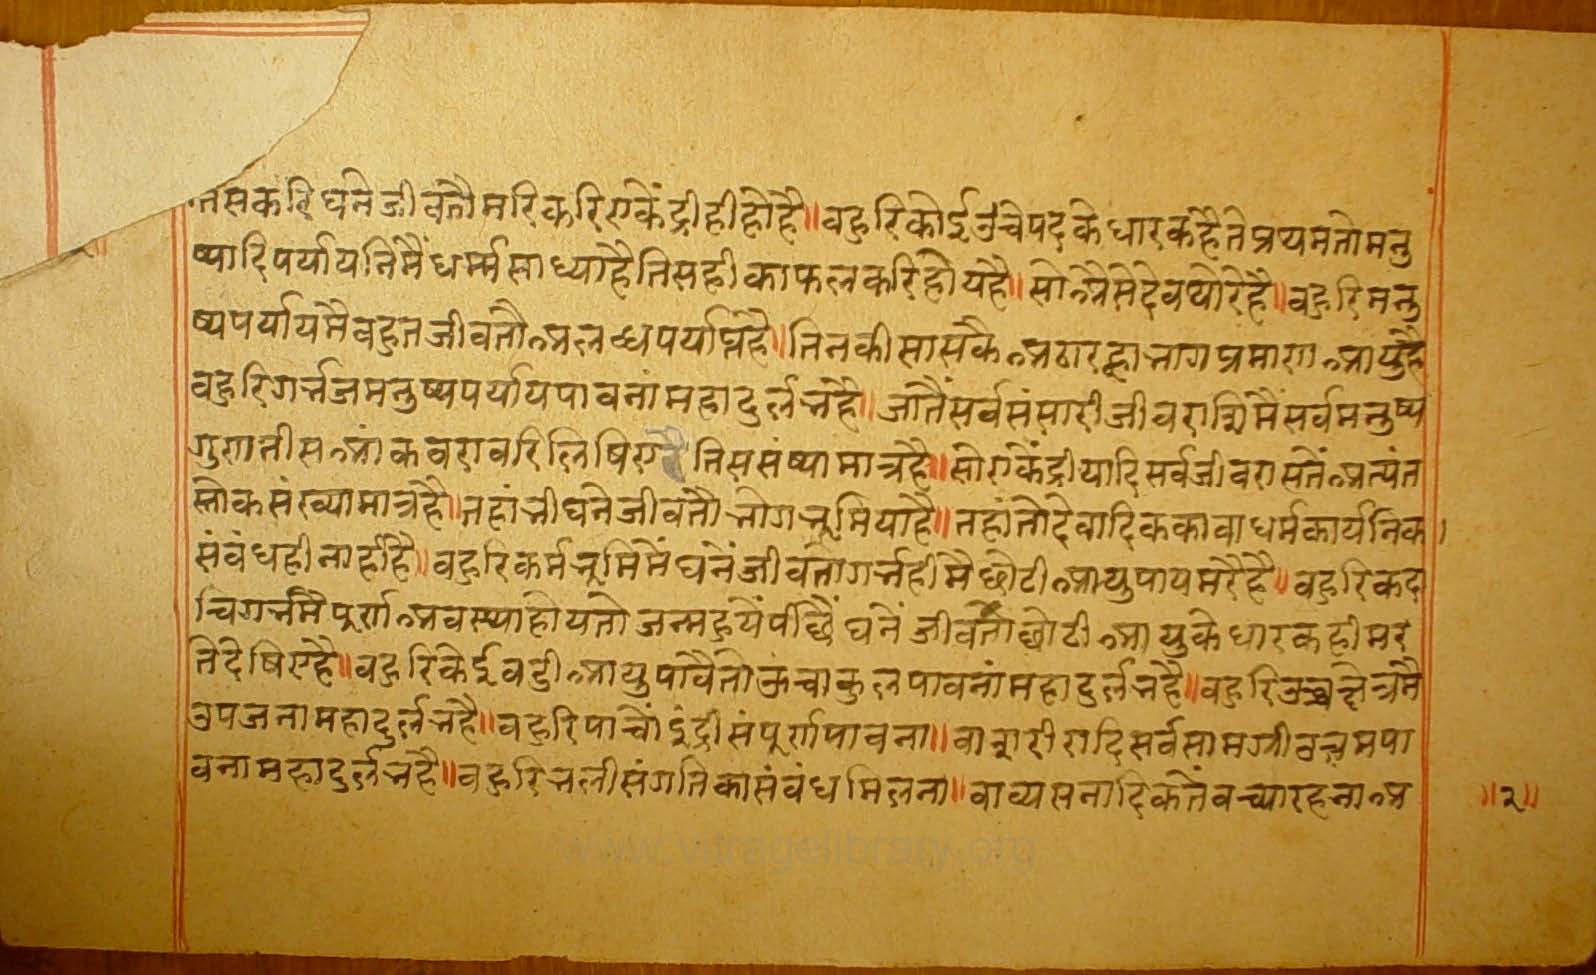 तिसकरि घने जीव तौ मरि करि एकेंद्री ही हो है॥ बहुरि कोई उंचे पद के धारक है ते प्रथम तो मनु
ष्यादि पर्याय तिंमैं धर्म्म साध्या है तिस ही का फल करि होय है॥ सो अैसे देव थोरे है॥ बहुरि मनु
ष्य पर्याय मै बहुत जीव तौ अलब्धपर्याप्त है॥ तिनकी सासकै अठारह्वा भाग प्रमाण आयु है
बहुरि गर्भज मनुष्य पर्याय पावनां महादुर्लभ है॥ जातैं सर्व संसारी जीवराशि मैं सर्व मनुष्य
गुणतीस आंक बराबरि लिषिए है तिस संष्यामात्र है॥ सो एकेंद्रीयादि सर्व जीवरासतैं अत्यंत
स्तोक संख्यामात्र है॥ तहां भी घने जीव तौ भोगभूमिया है॥ तहां तो देवादिक का वा धर्मकार्यनिक।
संबंध ही नाही है॥ बहुरि कर्मभूमि मैं घनें जीव तो गर्भ ही मै छोटी आयु पाय मरै है॥ बहुरि कदा
चि गर्भ मै पूर्ण अवस्था होय तो जन्म हुयें पीछैं घनें जीव तौ छोटी आयु के धारक ही मर
ते देषिए है॥ बहुरि केई बडी आयु पावै तो ऊंचा कुल पावनां महादुर्लभ है॥ बहुरि उच्च क्षेत्र मै
उपजना महादुर्लभ है॥ बहुरि पाचौं इंद्री संपूर्ण पावना॥ वा शरीरादि सर्व सामग्री उत्तम पा
वना महादुर्लभ है॥ बहुरि भली संगति का संबंध मिलना॥ वा व्यसनादिक तैं बच्या रहना अ
॥२॥
www.vitragelibrary.org